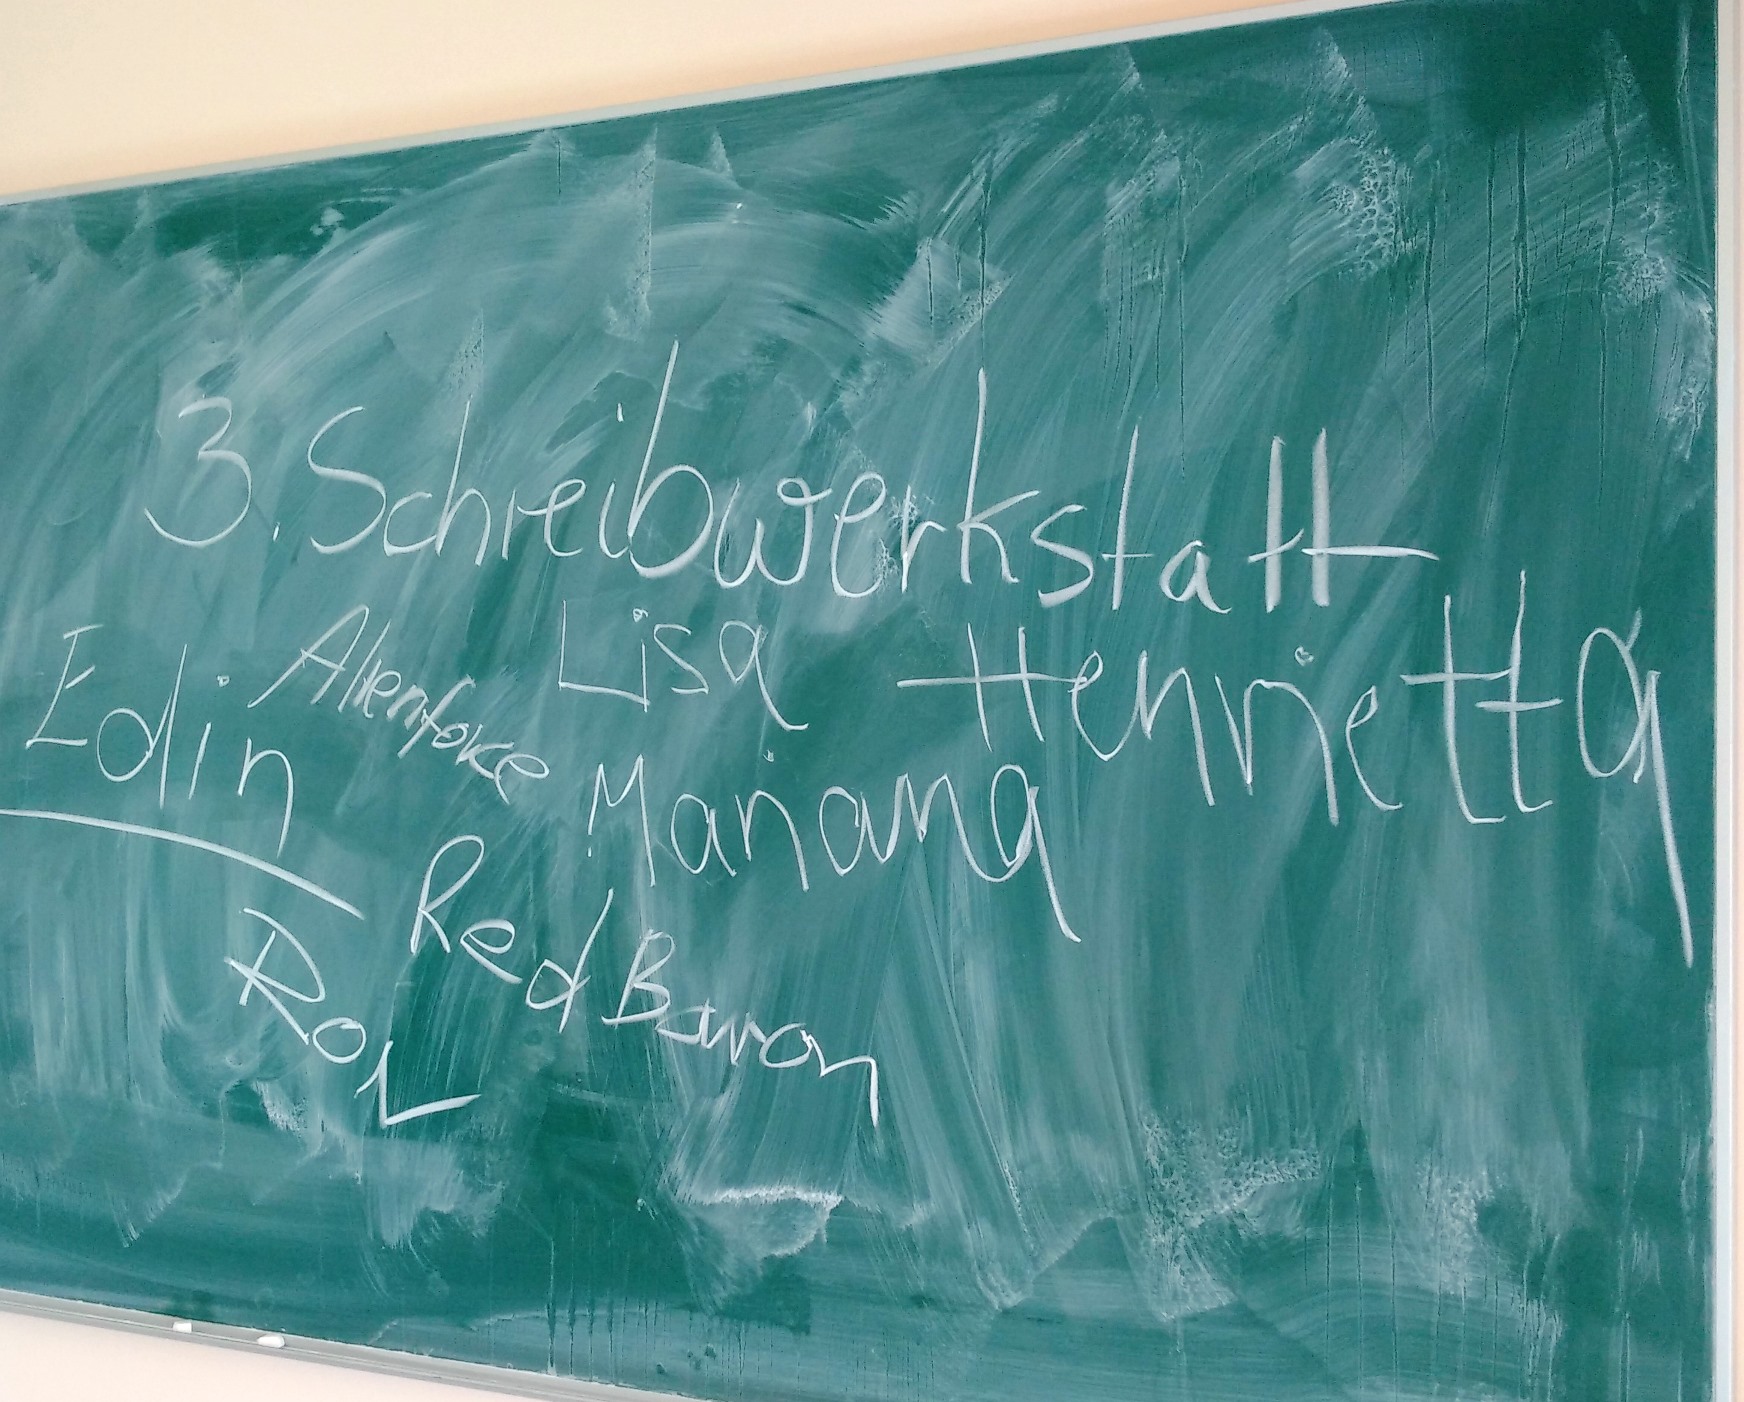 3. Schreibwerkstatt
Edin Alienforce Lisa Henrietta
Manana
Red Baron
RoL